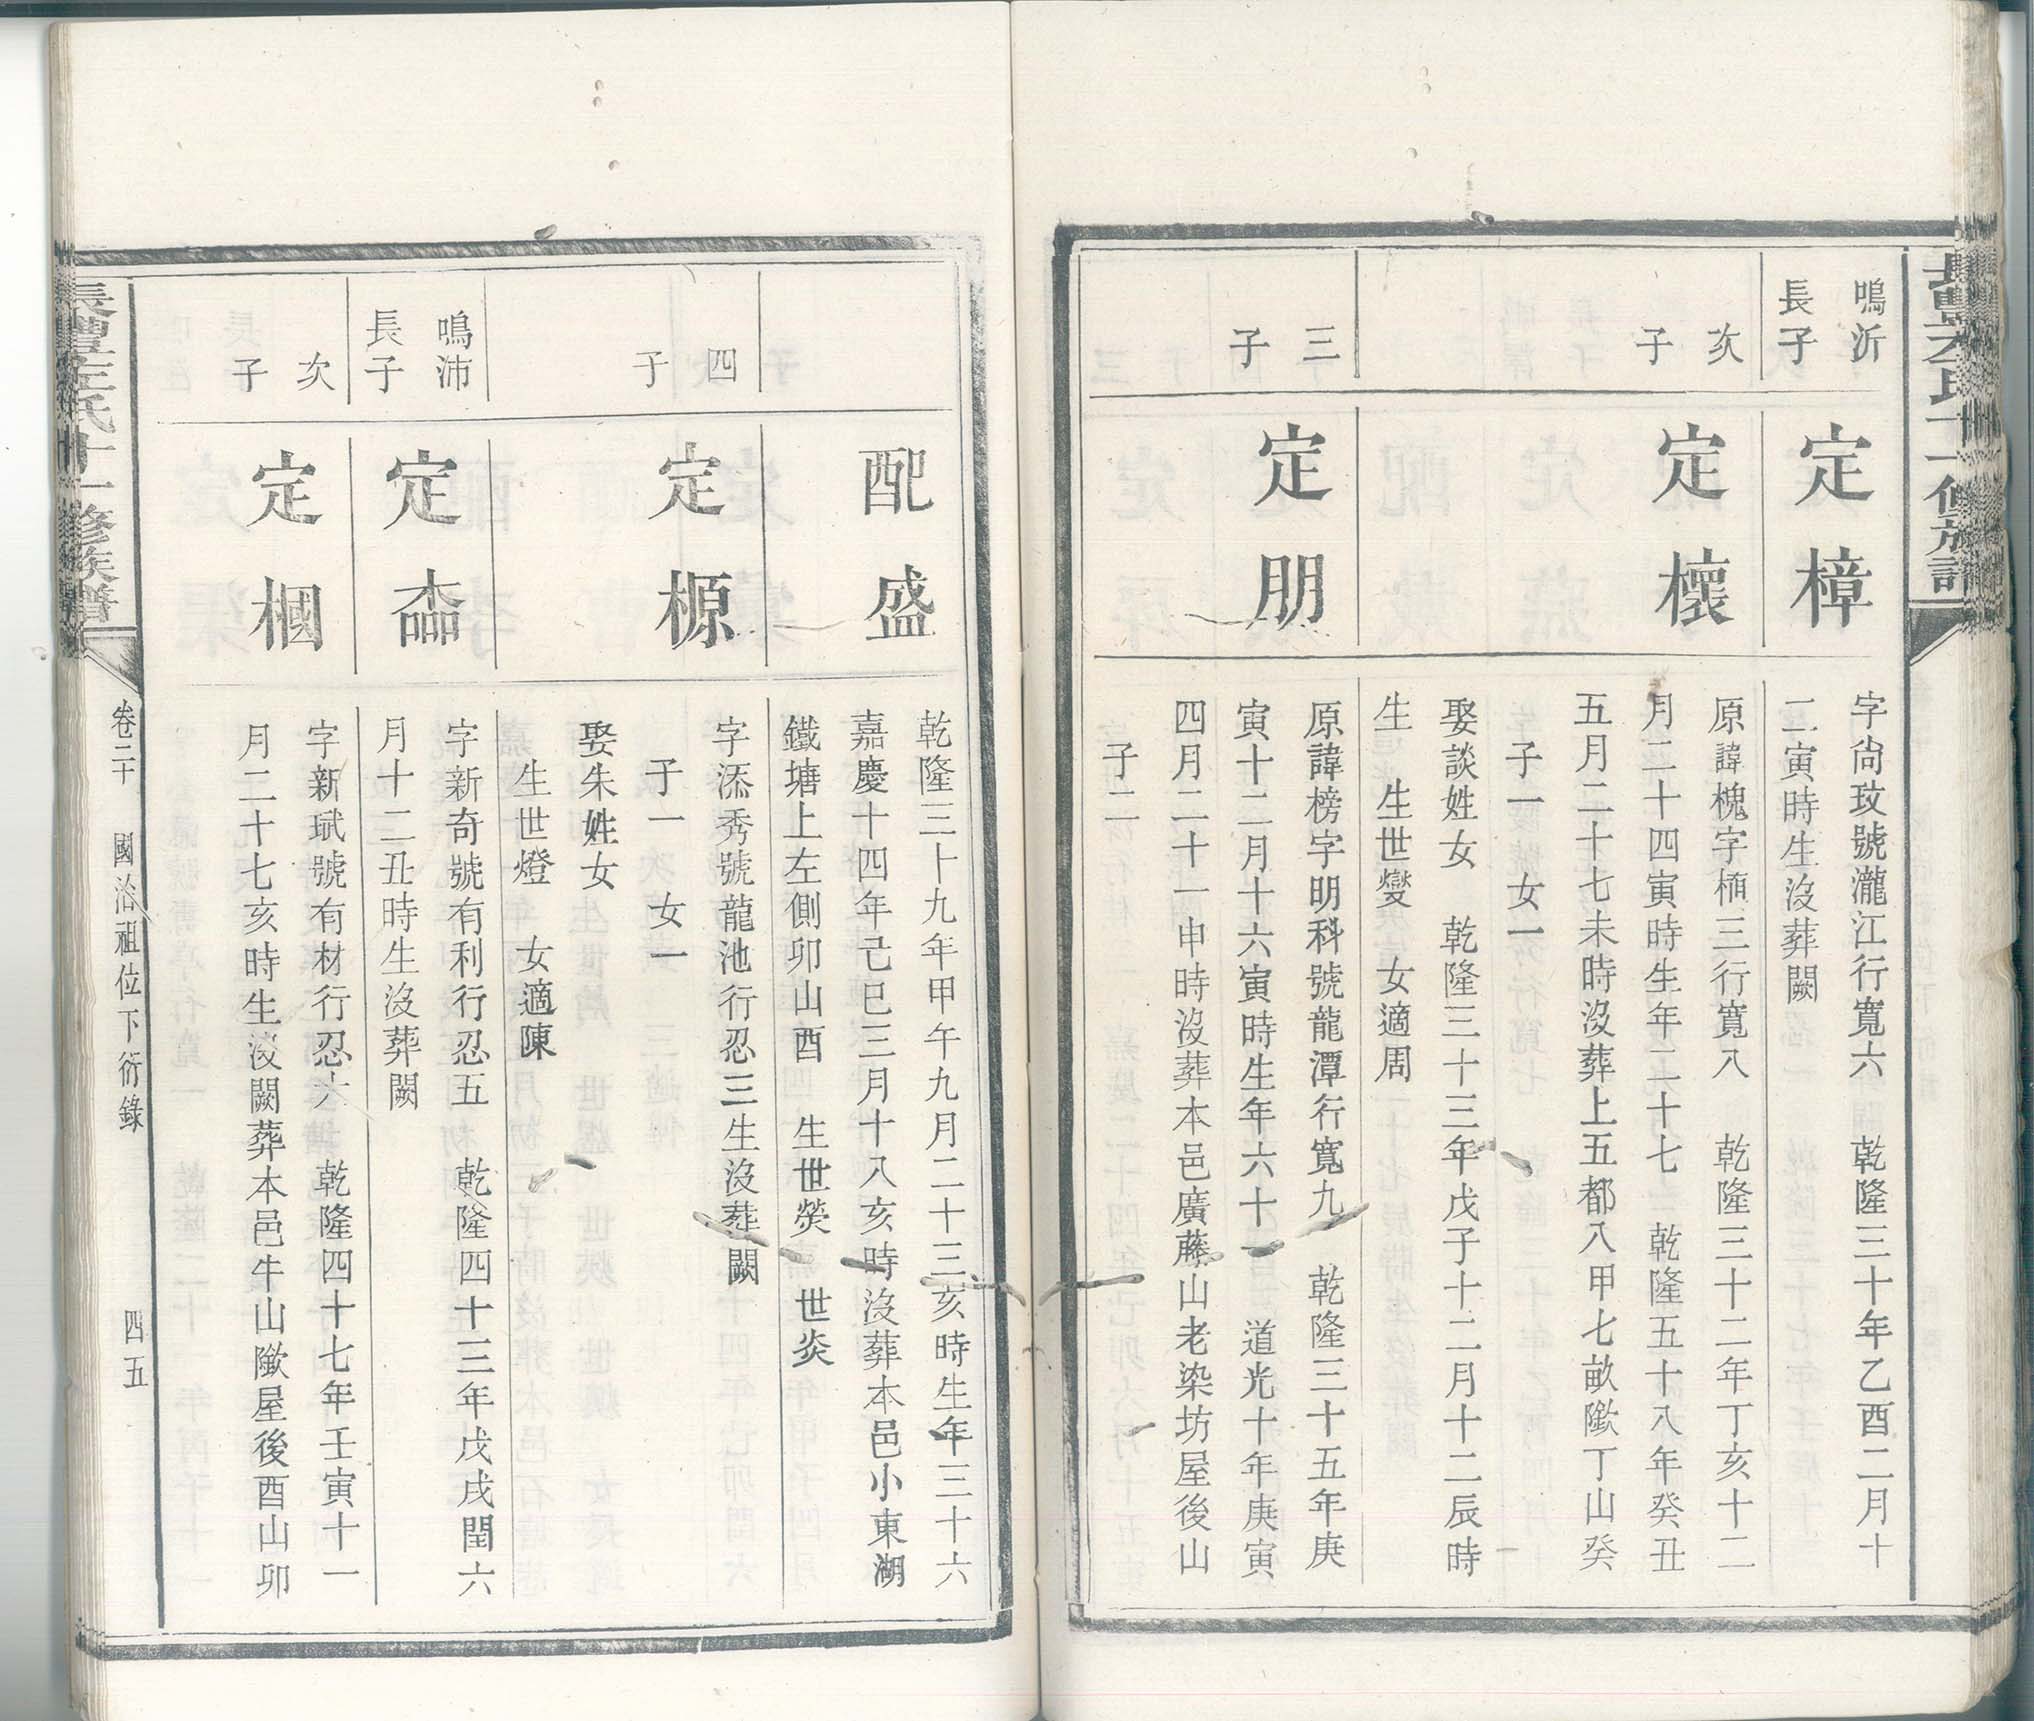 鳴沂
長子
定樟
字尙玟號瀧江行寬六 乾隆三十年乙酉二月十
二寅時生沒葬闕
次子
定櫰
原諱槐字栢三行寬八 乾隆三十二年丁亥十二
月二十四寅時生年二十七 乾隆五十八年癸丑
五月二十七未時沒葬上五都八甲七畝隞丁山癸
子一 女一
娶談姓女 乾隆三十三年戊子十二月十二辰時
生 生世燮 女適周
三子
定朋
原諱榜字明科號龍潭行寬九 乾隆三十五年庚
寅十二月十六寅時生年六十一 道光十年庚寅
四月二十一申時沒葬本邑廣藤山老染坊屋後山
子二
配盛
乾隆三十九年甲午九月二十三亥時生年三十六
嘉慶十四年己巳三月十八亥時沒葬本邑小東湖
鐵塘上左側卯山酉 生世熒 世炎
四子
定榞
字添秀號龍池行忍三生沒葬闕
子一 女一
娶朱姓女
生世燈 女適陳
鳴沛
長子
定
字新奇號有利行忍五 乾隆四十三年戊戌閏六
月十二丑時生沒葬闕
次子
定槶
字新斌號有材行忍六 乾隆四十七年壬寅十一
月二十七亥時生沒闕葬本邑牛山隞屋後酉山卯
長豐左氏十一修族譜
卷二十 國治祖位下衍錄 四五